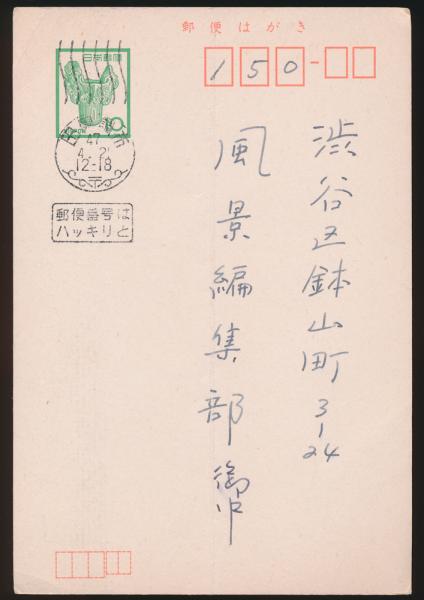 郵便はがき
150-
日本郵便
10
47
4. 2
12-18
郵便番号は
ハッキリと
渋谷区鉢山町3-24
風景編集部御中